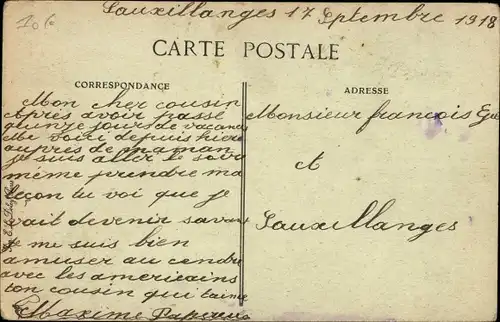 Sauxillanges 17 Septembre 1918
CARTE POSTALE
CORRESPONDANCE
Mon cher cousin
Après avoir passé
quinze jours de vacance
Me voici depuis hier
auprès de maman
je suis aller le soir
même prendre ma
leçon tu voi que je
vait devenir savant
je me suis bien
amuser au cendre
avec les americains
ton cousin qui t'aime
Maxime
ADRESSE
Monsieur francois
et
Sauxillanges